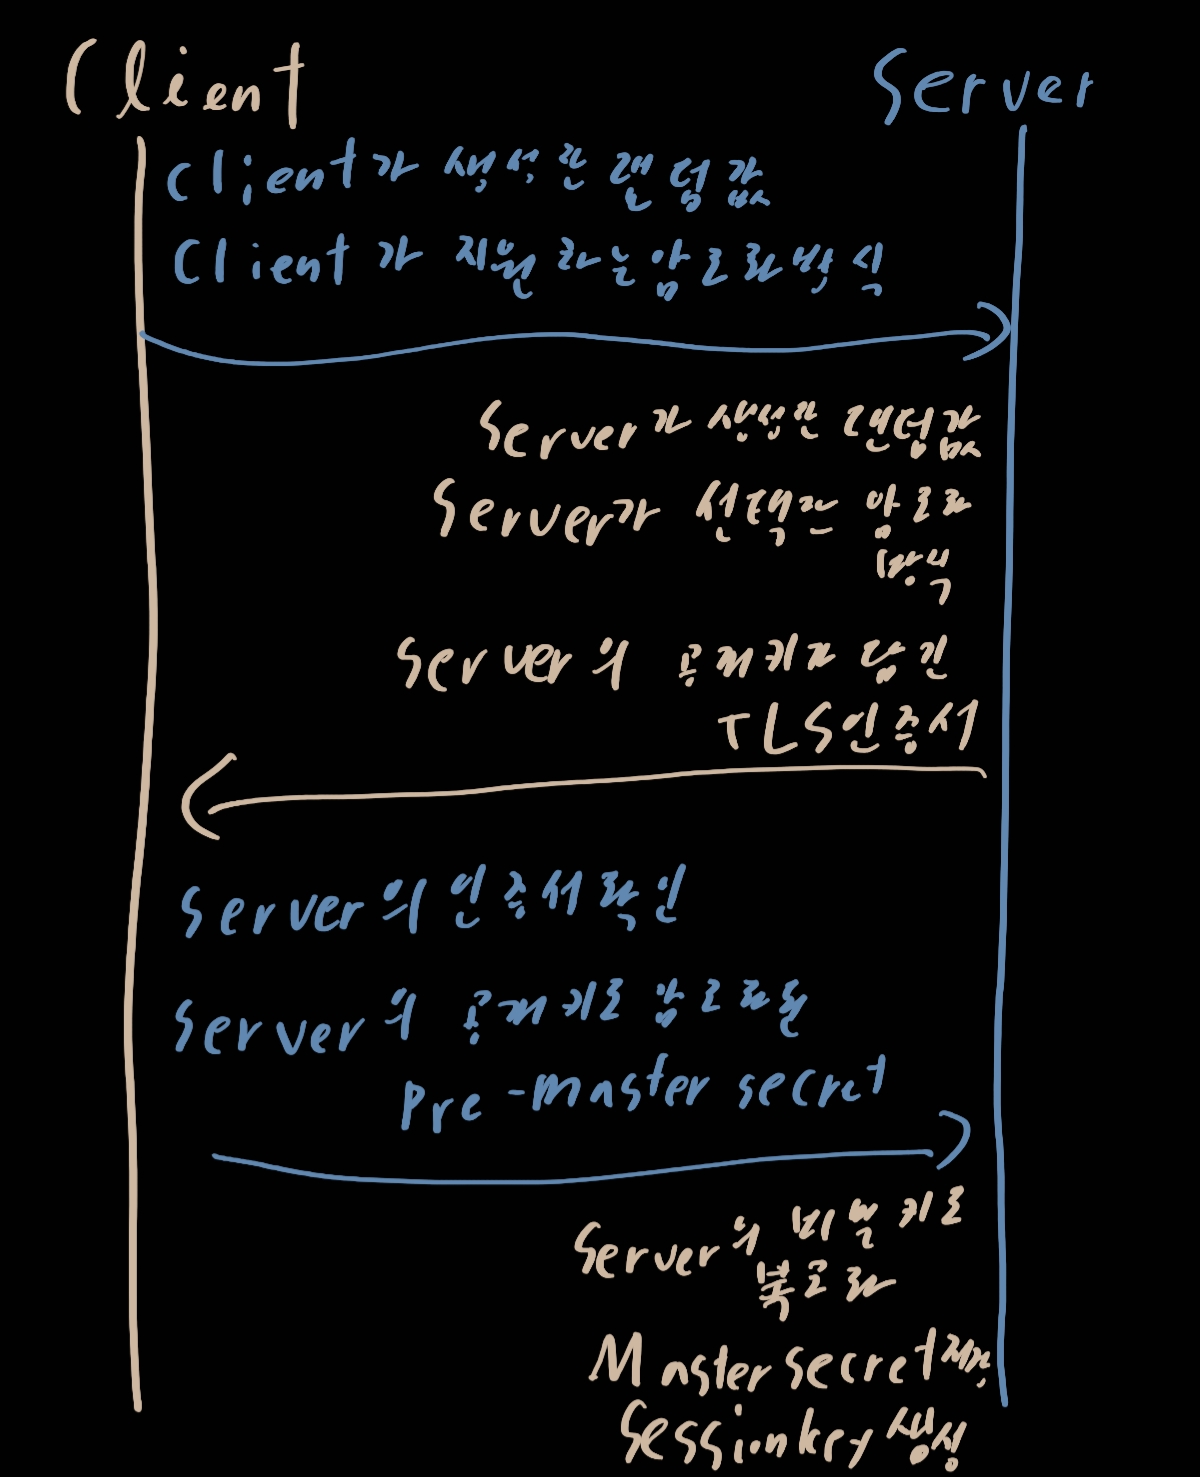 Client
Server
Client가 생성한 랜덤값
Client가 지원하는 암호화방식
Server가 생성한 랜덤값
Server가 선택한 암호화
방식
Server의 공개키가 담긴
TLS인증서
Server의 인증서확인
Server의 공개키로 암호화된
Pre-master secret
Server의 비밀키로
복호화
Master secret
Session key 생성